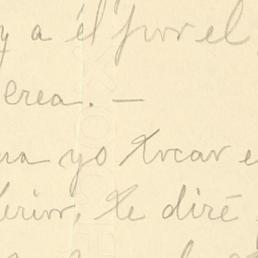 y a él por el
erea. —
na yo tocar e
terior, te diré